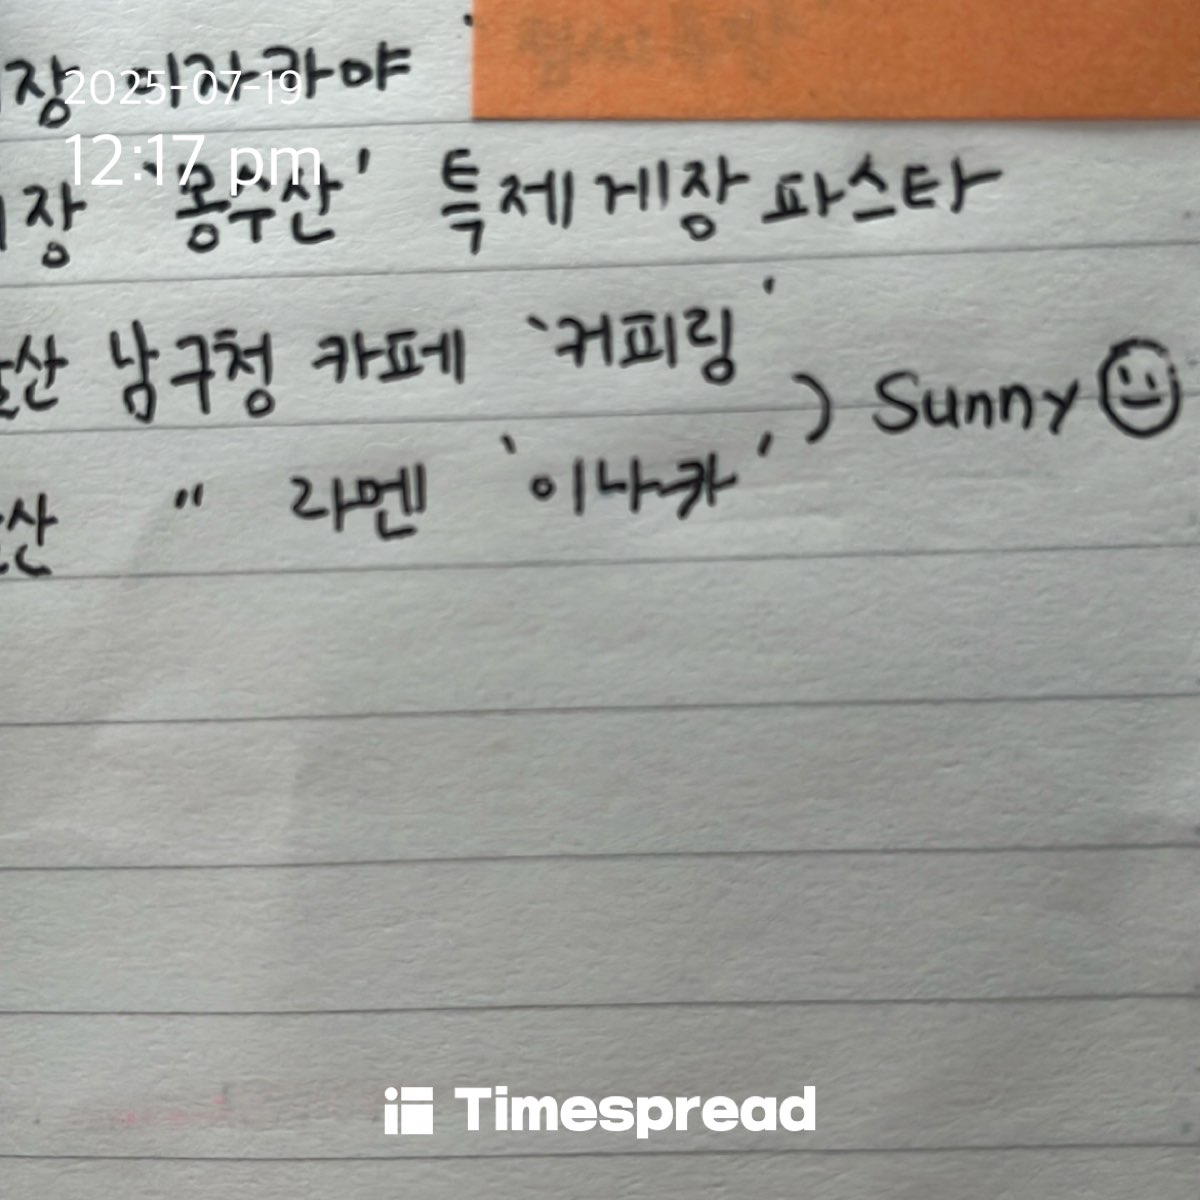 2025-07-19
12:17 pm
장 이자카야
장 '몽수산' 특제 게장 파스타
산 남구청 카페 '커피링'
산 " 라멘 '이나카' ) Sunny
Timespread